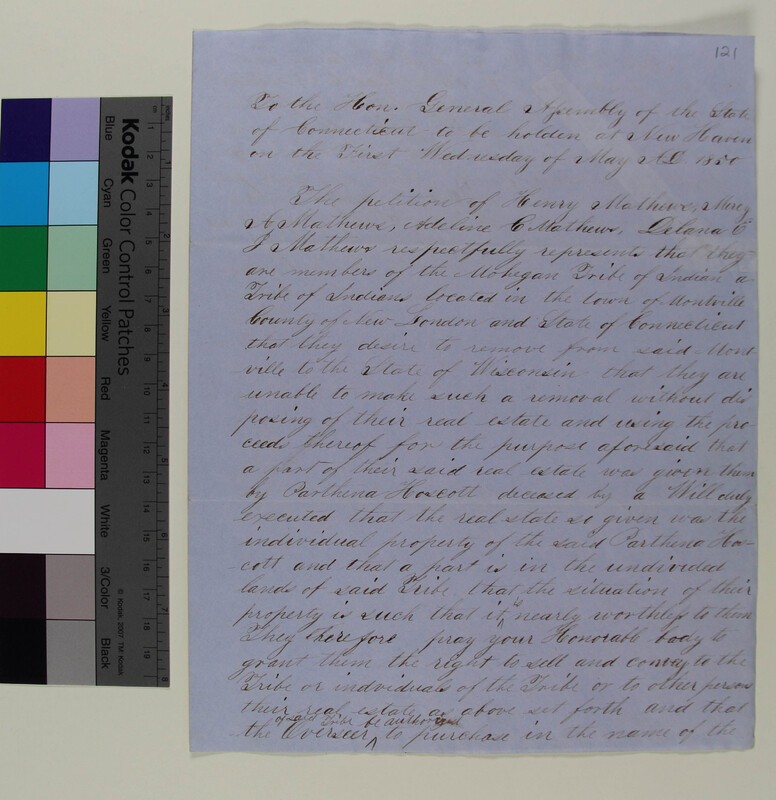 121
To the Hon. General Assembly of the State
of Connecticut to be holden at New Haven
on the First Wednesday of May AD 1850
The petition of Henry Mathews, Mercy
A Mathews, Adeline C Mathews, Delana C
J Mathews respectfully represents that they
are members of the Mohegan Tribe of Indian a
Tribe of Indians located in the town of Montville
County of New London and State of Connecticut
that they desire to remove from said Mont
ville to the State of Wisconsin that they are
unable to make such a removal without dis
posing of their real estate and using the pro-
ceeds thereof for the purpose aforesaid that
a part of their said real estate was given them
by Parthena Hoscott deceased by a Will duly
executed that the real state so given was the
individual property of the said Parthena Hos-
cott and that a part is in the undivided
lands of said Tribe that the situation of their
property is such that it is nearly worthless to them
They therefore pray your Honorable body to
grant them the right to sell and convey to the
Tribe or individuals of the Tribe or to other persons
their real estate as above set forth and that
of said Tribe be authorised
the Overseer ^ to purchase in the name of the
Kodak Color Control Patches
Blue
Cyan
Green
Yellow
Red
Magenta
White
3/Color
Black
© Kodak, 2007 TM: Kodak
cm
1
2
3
4
5
6
7
8
9
10
11
12
13
14
15
16
17
18
19
inches
1
2
3
4
5
6
7
8